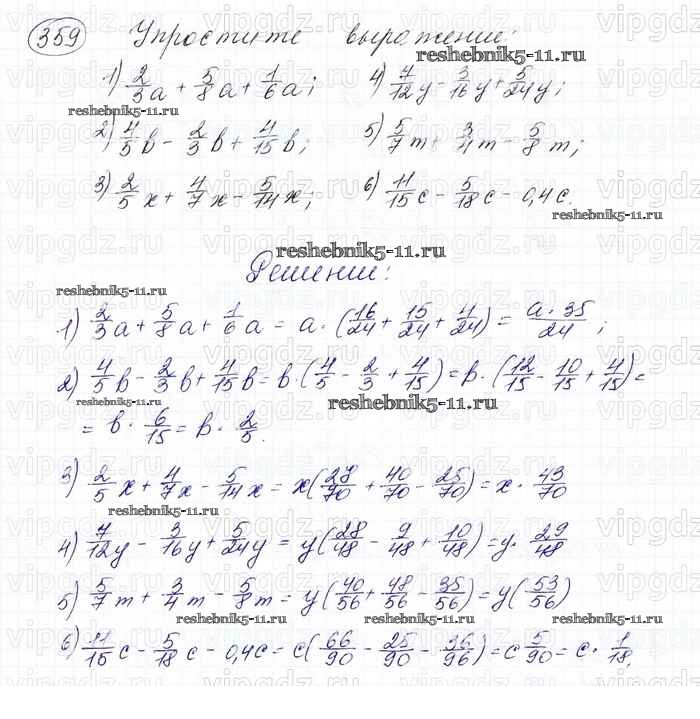 359 Упростите выражение:
1) 2/3 a + 5/8 a + 1/6 a; 4) 7/12 y - 3/16 y + 5/24 y;
reshebnik5-11.ru
reshebnik5-11.ru
2) 4/5 b - 2/3 b + 4/15 b; 5) 5/7 m + 3/4 m - 5/8 m;
3) 2/5 x + 4/7 x - 5/14 x; 6) 11/15 c - 5/18 c - 0,4c.
reshebnik5-11.ru
Решение:
reshebnik5-11.ru
1) 2/3 a + 5/8 a + 1/6 a = a · (16/24 + 15/24 + 4/24) = a · 35/24;
2) 4/5 b - 2/3 b + 4/15 b = b · (4/5 - 2/3 + 4/15) = b · (12/15 - 10/15 + 4/15) =
reshebnik5-11.ru
= b · 6/15 = b · 2/5.
3) 2/5 x + 4/7 x - 5/14 x = x(28/70 + 40/70 - 25/70) = x · 43/70
reshebnik5-11.ru
4) 7/12 y - 3/16 y + 5/24 y = y(28/48 - 9/48 + 10/48) = y · 29/48
5) 5/7 m + 3/4 m - 5/8 m = y(40/56 + 48/56 - 35/56) = y(53/56)
reshebnik5-11.ru reshebnik5-11.ru
6) 11/15 c - 5/18 c - 0,4c = c(66/90 - 25/90 - 36/96) = c 5/90 = c · 1/18.